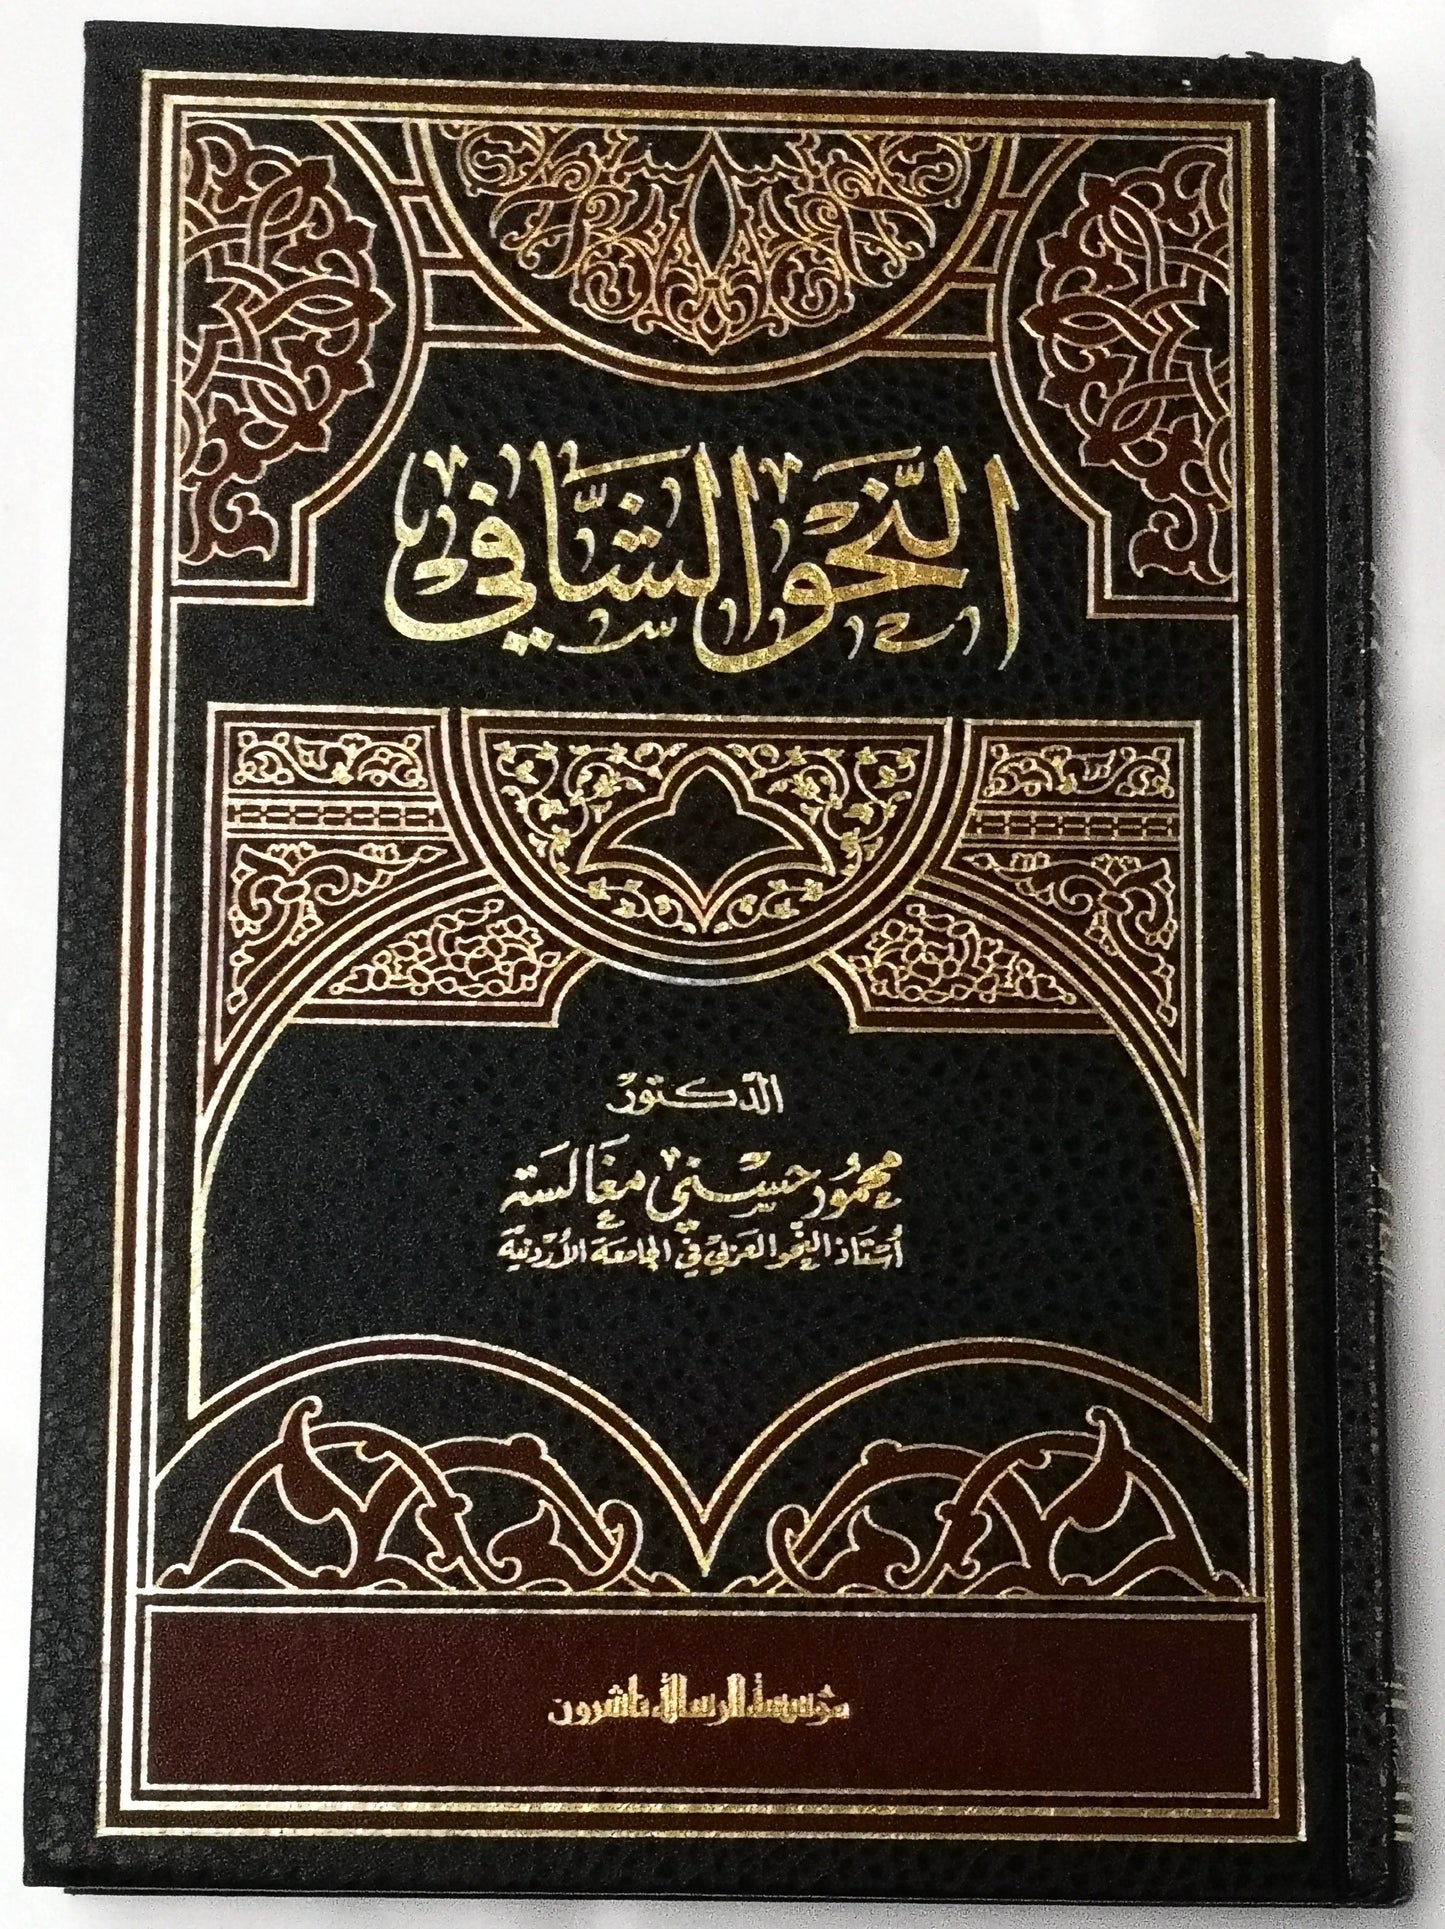 النَّحو الشَّافي
الدكتور
محمُود حسني مغَالسَة
أستَاذ النحو العَربي في الجامعَة الأردنيَة
مؤسسة الرسالة ناشرون